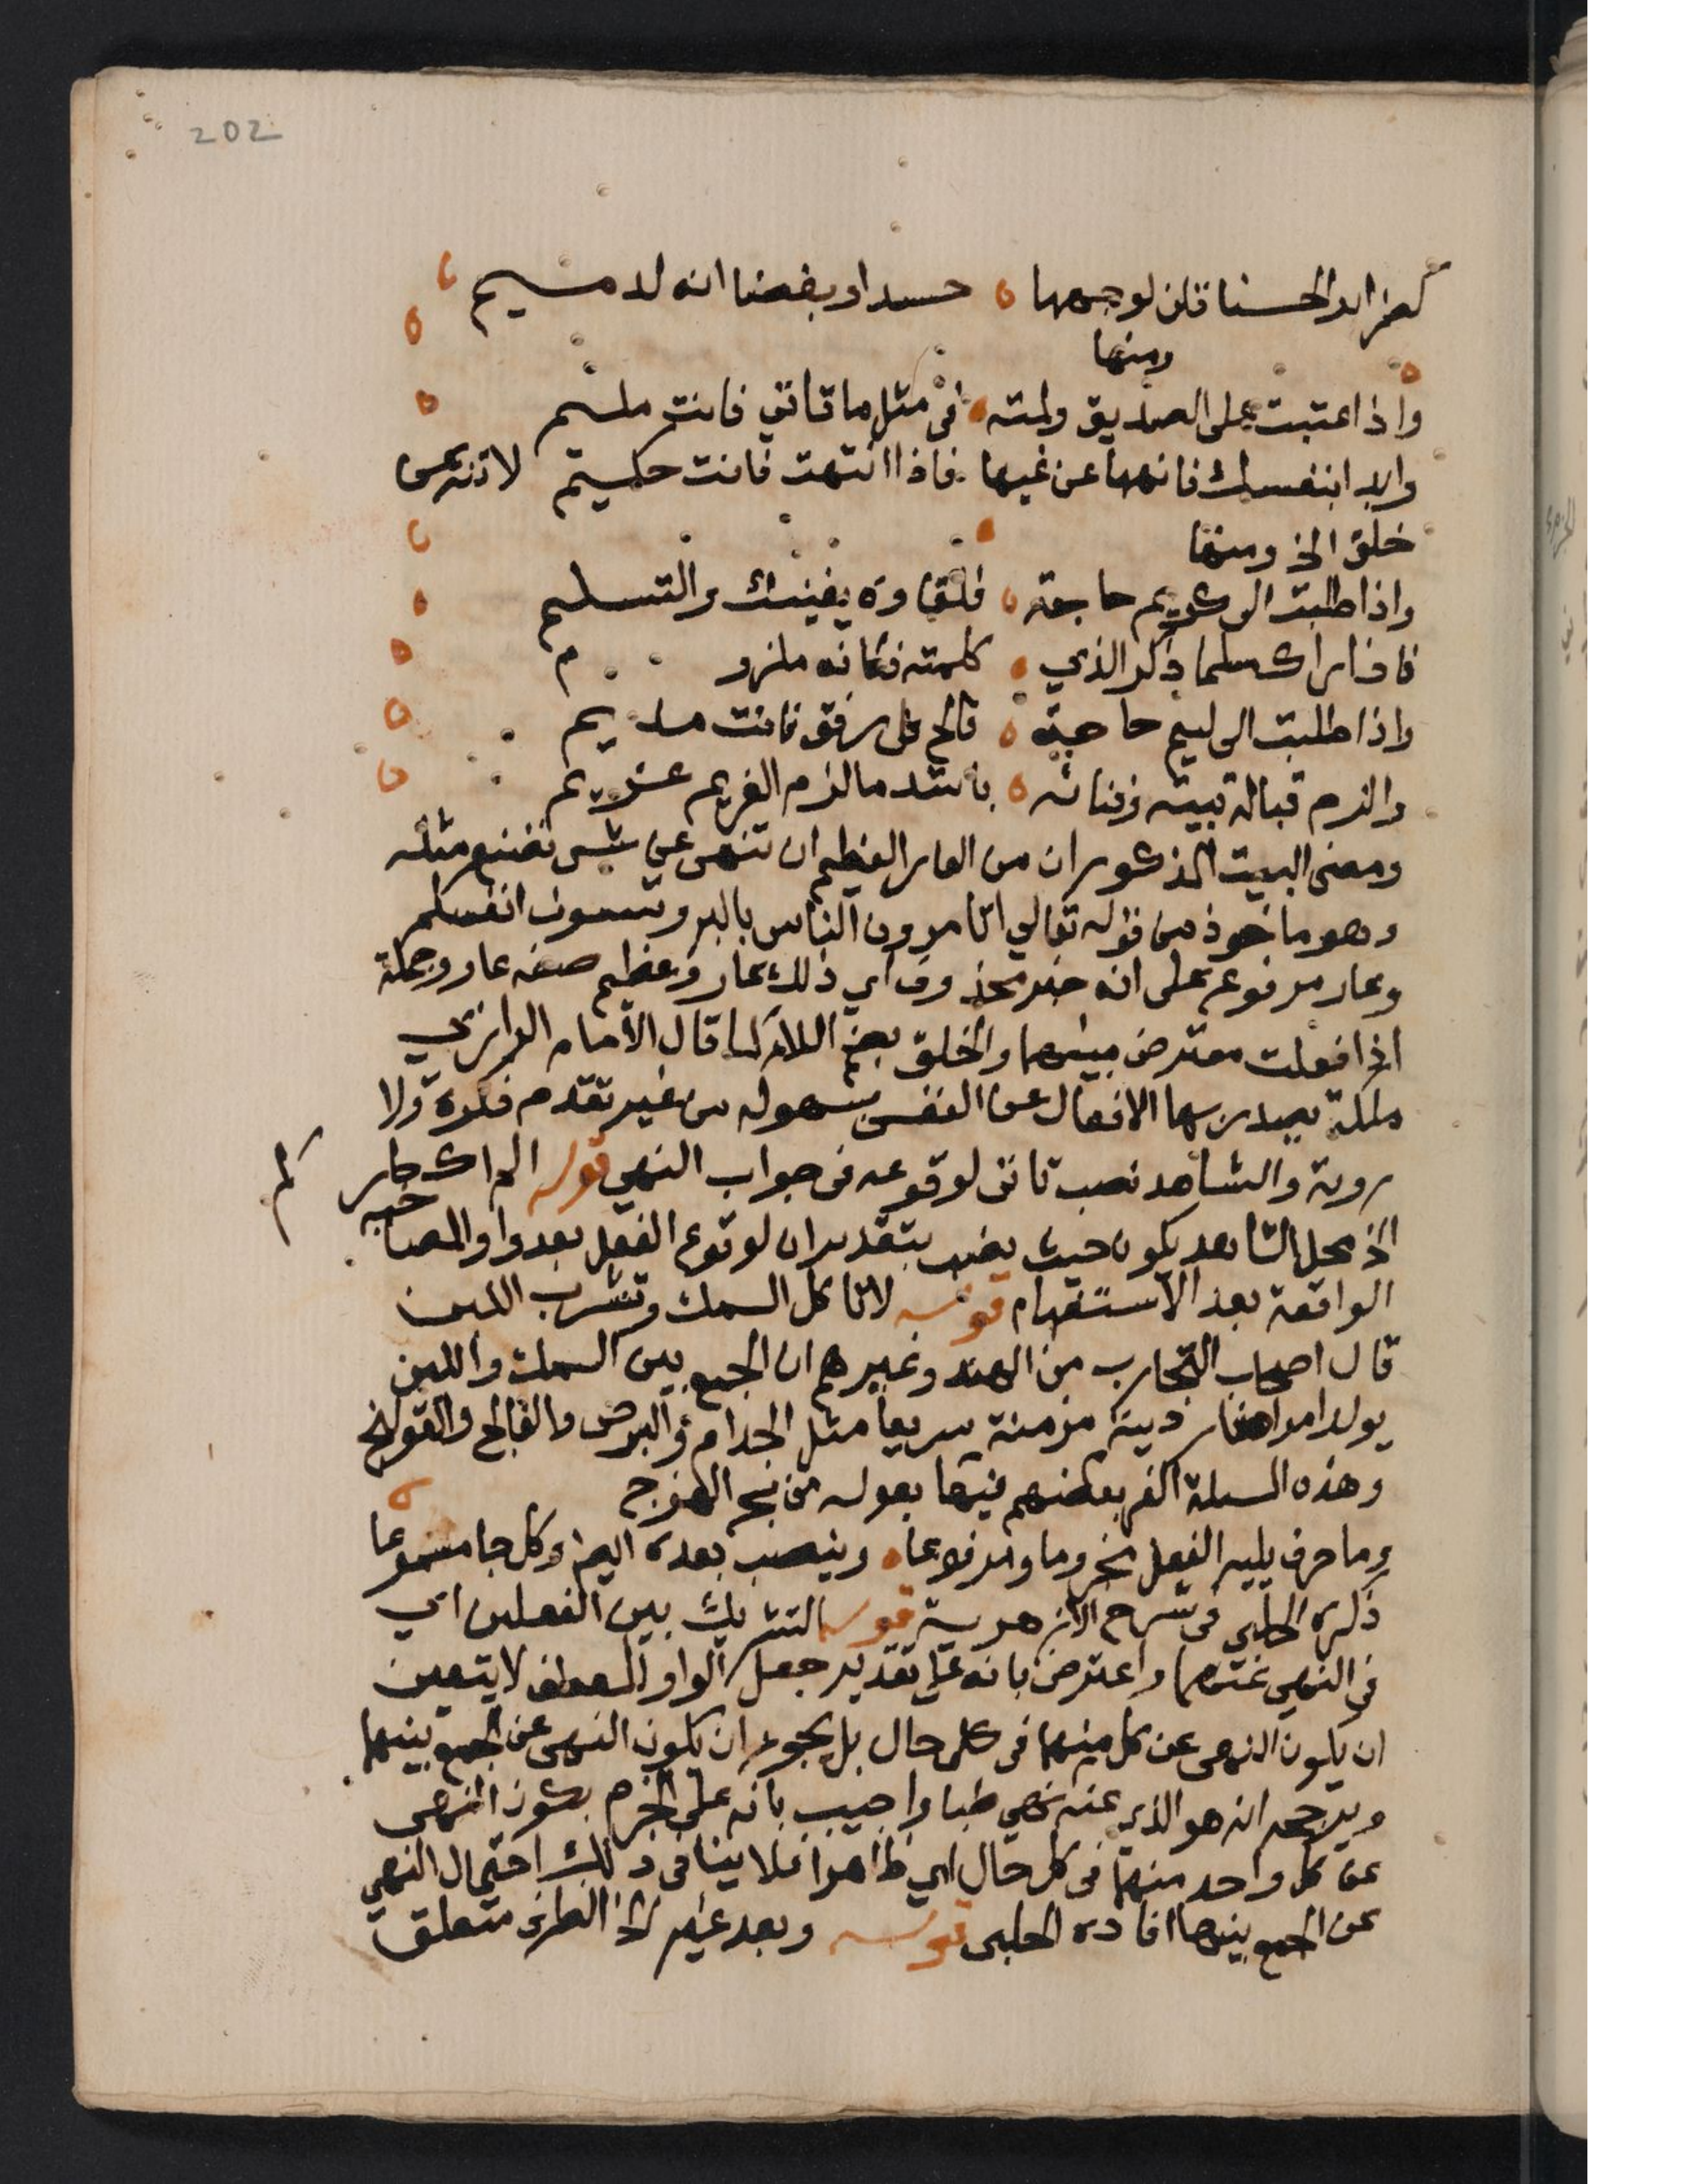 202
كضراير الحسنا قلن لوجهها حسدا وبغضا انه لدميم
ومنها
واذا عتبت على الصديق ولمته في مثل ما تاتي فانت مليم
وابدا بنفسك فانهها عن غيها فاذا انتهت فانت حكيم لا تنه عن
خلق الخ ومنها
واذا طلبت الى كريم حاجة فلقاوه يغنيك والتسليم
فاذا راك مسلما ذكر الذي كلمته فكانه ملزوم
واذا طلبت الى ليم حاجة فالح في رفق فانت مديم
والزم قبالة بيته وفنائه باشد ما لزم الغريم غريم
ومعنى البيت المذكور ان من العار العظيم ان تنهى عن شى تصنع مثله
وهو ماخوذ من قوله تعالي اتامرون الناس بالبر وتنسون انفسكم
وعار مرفوع على انه خبر محذوف اي ذلك عار وعظيم صفه عار وجملة
اذا فعلت معترض بينهما والخلق بضم اللام كما قال الامام الرازي
ملكة يصدر بها الافعال عن النفس بسهوله من غير تقدم فكرة ولا
روية والشاهد نصب تاتى لوقوعه فى جواب النهي قوله الم اك جاركم
الخ محل الشاهد يكون حيث نصب بتقدير ان لوقوع الفعل بعد واو المصاحبه
الواقعة بعد الاستفهام قوله لا تاكل السمك وتشرب اللبن
قال اصحاب التجارب من الهند وغيرهم ان الجمع بين السمك واللبن
يولد امراضا ردية مزمنة سريعا مثل الجدام والبرص والفالج والقولنج
وهذه المسلة الغز بعضهم فيها بقوله من بحر الهزج
وما حرف يليه الفعل مجزوما ومرفوعا وينصب بعده ايضا وكل جا مسموعا
ذكره الحلبي في شرح الازهرية قوله التشريك بين الفعلين اي
في النهي عنهما واعترض بانه على تقدير جعل الواو للعطف لا يتعين
ان يكون النهى عن كل منهما فى كل حال بل يجوز ان يكون النهى عن الجمع بينهما
ويرجحه انه هو الذي عنه نهي طبا واجيب بانه على الجزم يكون النهى
عن كل واحد منهما في كل حال اي ظاهرا فلا ينافى ذلك احتمال النهي
عن الجمع بينهما افاده الحلبى قوله وبعد غير الظرف متعلق